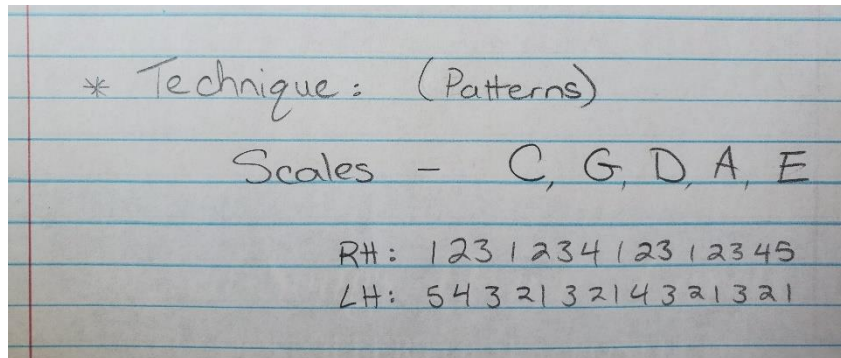 * Technique: (Patterns)
Scales - C, G, D, A, E
RH: 123 1234 123 12345
LH: 54321 321 4321 321